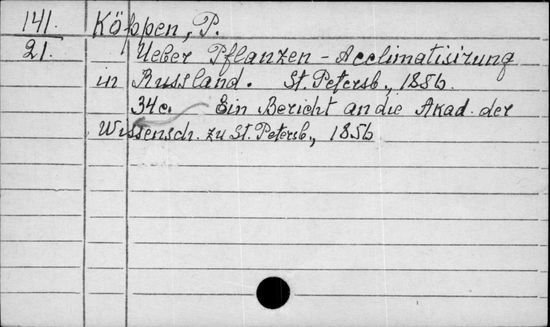 141. Köppen, P.
21. Ueber Pflanzen-Acclimatisirung
in Russland. St. Petersb., 1856.
34c. Ein Bericht an die Akad. der
Wissensch. zu St. Petersb., 1856